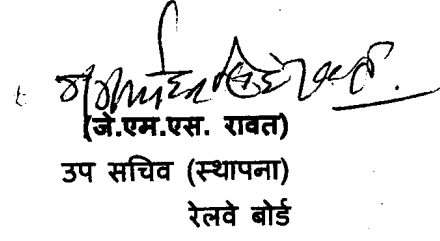 (जे.एम.एस. रावत)
उप सचिव (स्थापना)
रेलवे बोर्ड